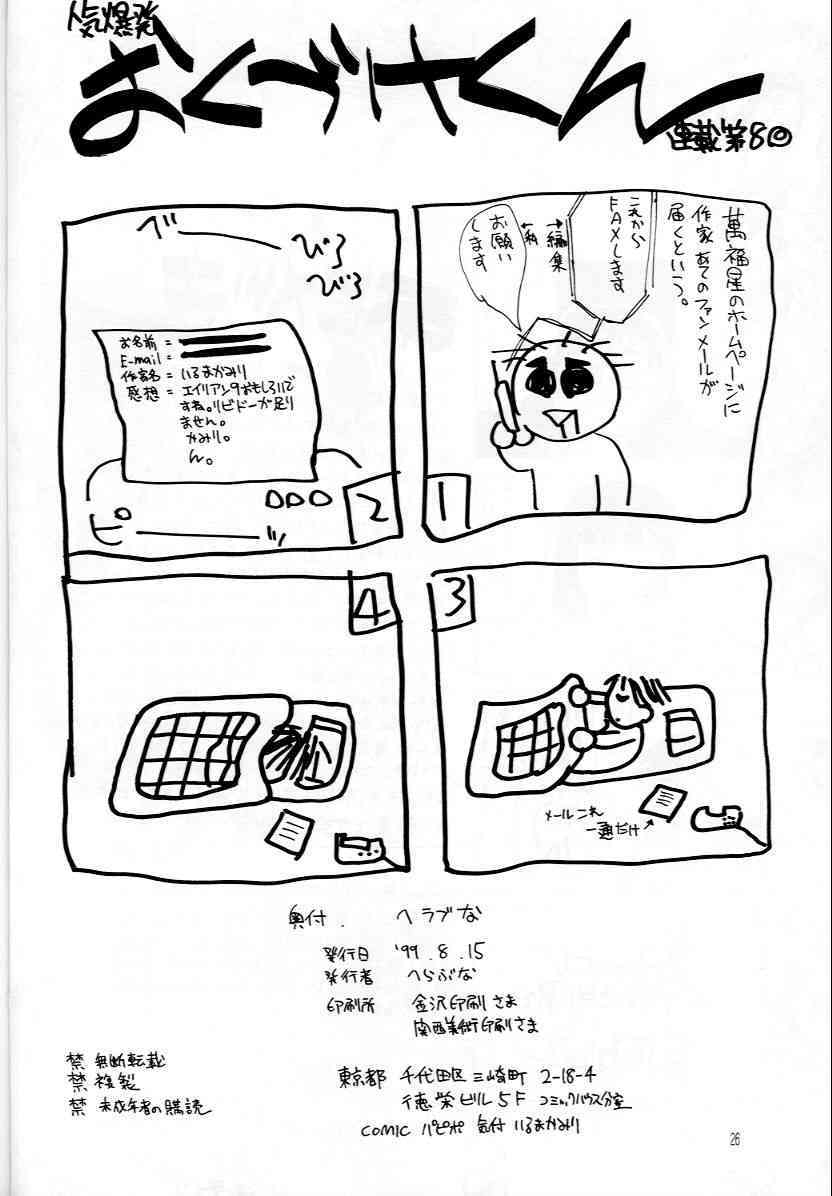 人気爆発
おくづけくん
連載第8回
萬福星のホームページに
作家あてのファンメールが
届くという。
これから
FAXします
↑編集
←私
お願い
します
1
ブー
びろ
びろ
お名前 =
E-mail =
作家名 = いるまかみり
感想 = エイリアン9おもしろいで
すね。リビドーが足り
ません。
かみり。
ん。
ピーッ
2
3
メールこれ
一通だけ
4
奥付. へラブな
発行日 '99.8.15
発行者 へらぶな
印刷所 金沢印刷さま
関西美術印刷さま
禁 無断転載
禁 複製
禁 未成年者の購読
東京都 千代田区三崎町 2-18-4
徳栄ビル5F コミックハウス分室
COMIC パピポ 気付 いるまかみり
26